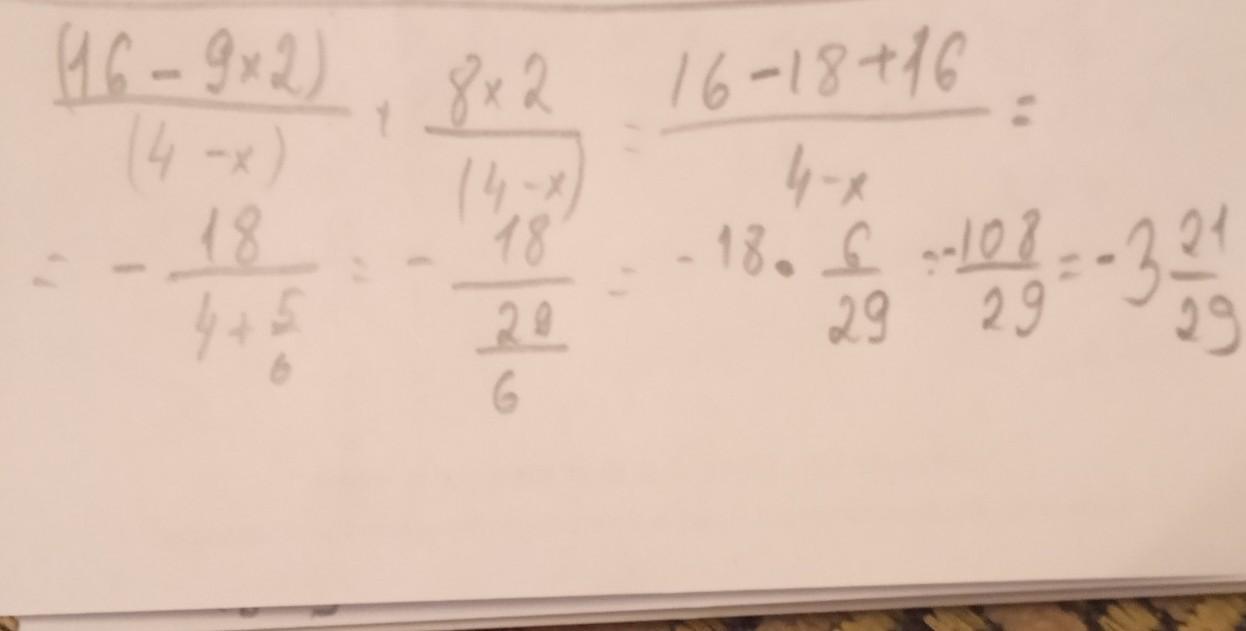 (16 - 9×2)/(4 - x) + 8×2/(4 - x) = 16 - 18 + 16/4 - x =
= - 18/4 + 5/6 = - 18/29/6 = - 18 · 6/29 = - 108/29 = - 3 21/29